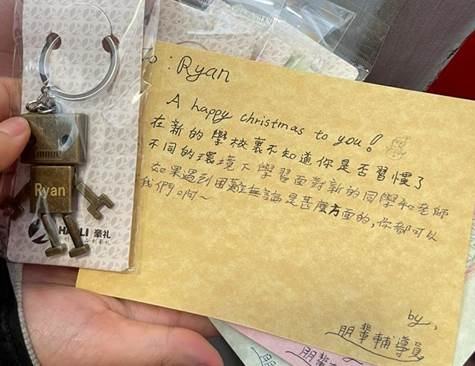 To : Ryan
A happy christmas to you!
在新的學校裏不知道你是否習慣了
不同的環境下學習面對新的同學和老師
如果遇到困難無論是甚麼方面的，你都可以
我們啊～
by,
朋輩輔導員
Ryan
HAOLI 豪礼
朋輩